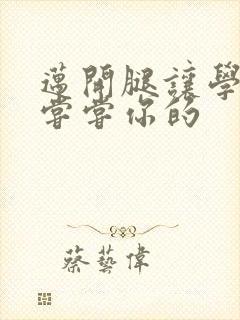 邁開腿讓學
嘗嘗你的
蔡藝偉